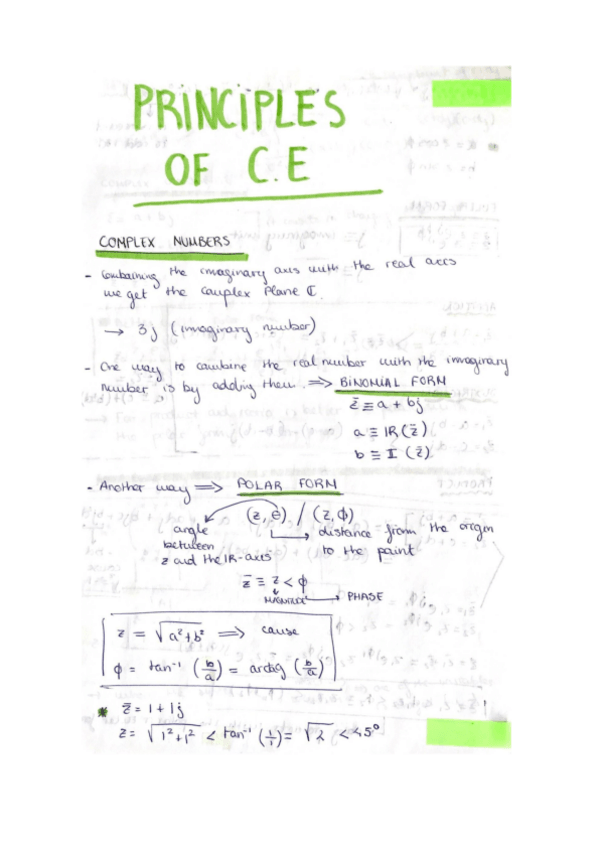 PRINCIPLES
OF C.E
COMPLEX NUMBERS
- Combaining the imaginary axis with the real axis
we get the complex plane ℂ.
→ 3j (imaginary number)
- One way to combine the real number with the imaginary
number is by adding them. ⟹ BINOMIAL FORM
z̄ ≡ a + bj
a ≡ IR (z̄)
b ≡ I (z̄)
- Another way ⟹ POLAR FORM
(z, θ) / (z, φ)
angle
between
z and the IR-axis
distance from the origin
to the point
z̄ ≡ z < φ
MAGNITUDE → PHASE
z = √a²+b² ⟹ cause
φ = tan⁻¹ (b/a) = arctg (b/a)
* z̄ = 1 + 1j
z = √1²+1² < tan⁻¹ (1/1) = √2 < 45°